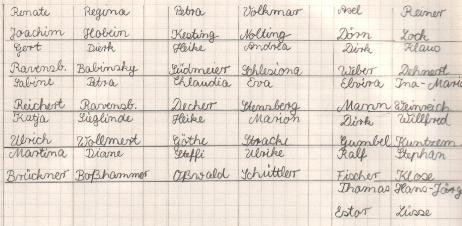 Renate Regina Petra Volkmar Axel Reiner
Joachim Hobein Kesting Nolting Dörn Lock
Gert Dirk Heike Andrea Dirk Klaus
Ravensb. Babinsky Südmeier Schlesiona Weber Dehnert
Sabine Petra Chlaudia Eva Elvira Ina-Mari
Reichert Ravensb. Decher Stennsberg Mann Weinreich
Katja Sieglinde Heike Marion Dirk Willfred
Ulrich Wollmert Göthe Strache Gumbel Kuntzem.
Martina Diane Steffi Ulrike Ralf Stephan
Brückner Boßhammer Oßwald Schüttler Fischer Klose
Thomas Hans-Jörg
Ester Lüsse